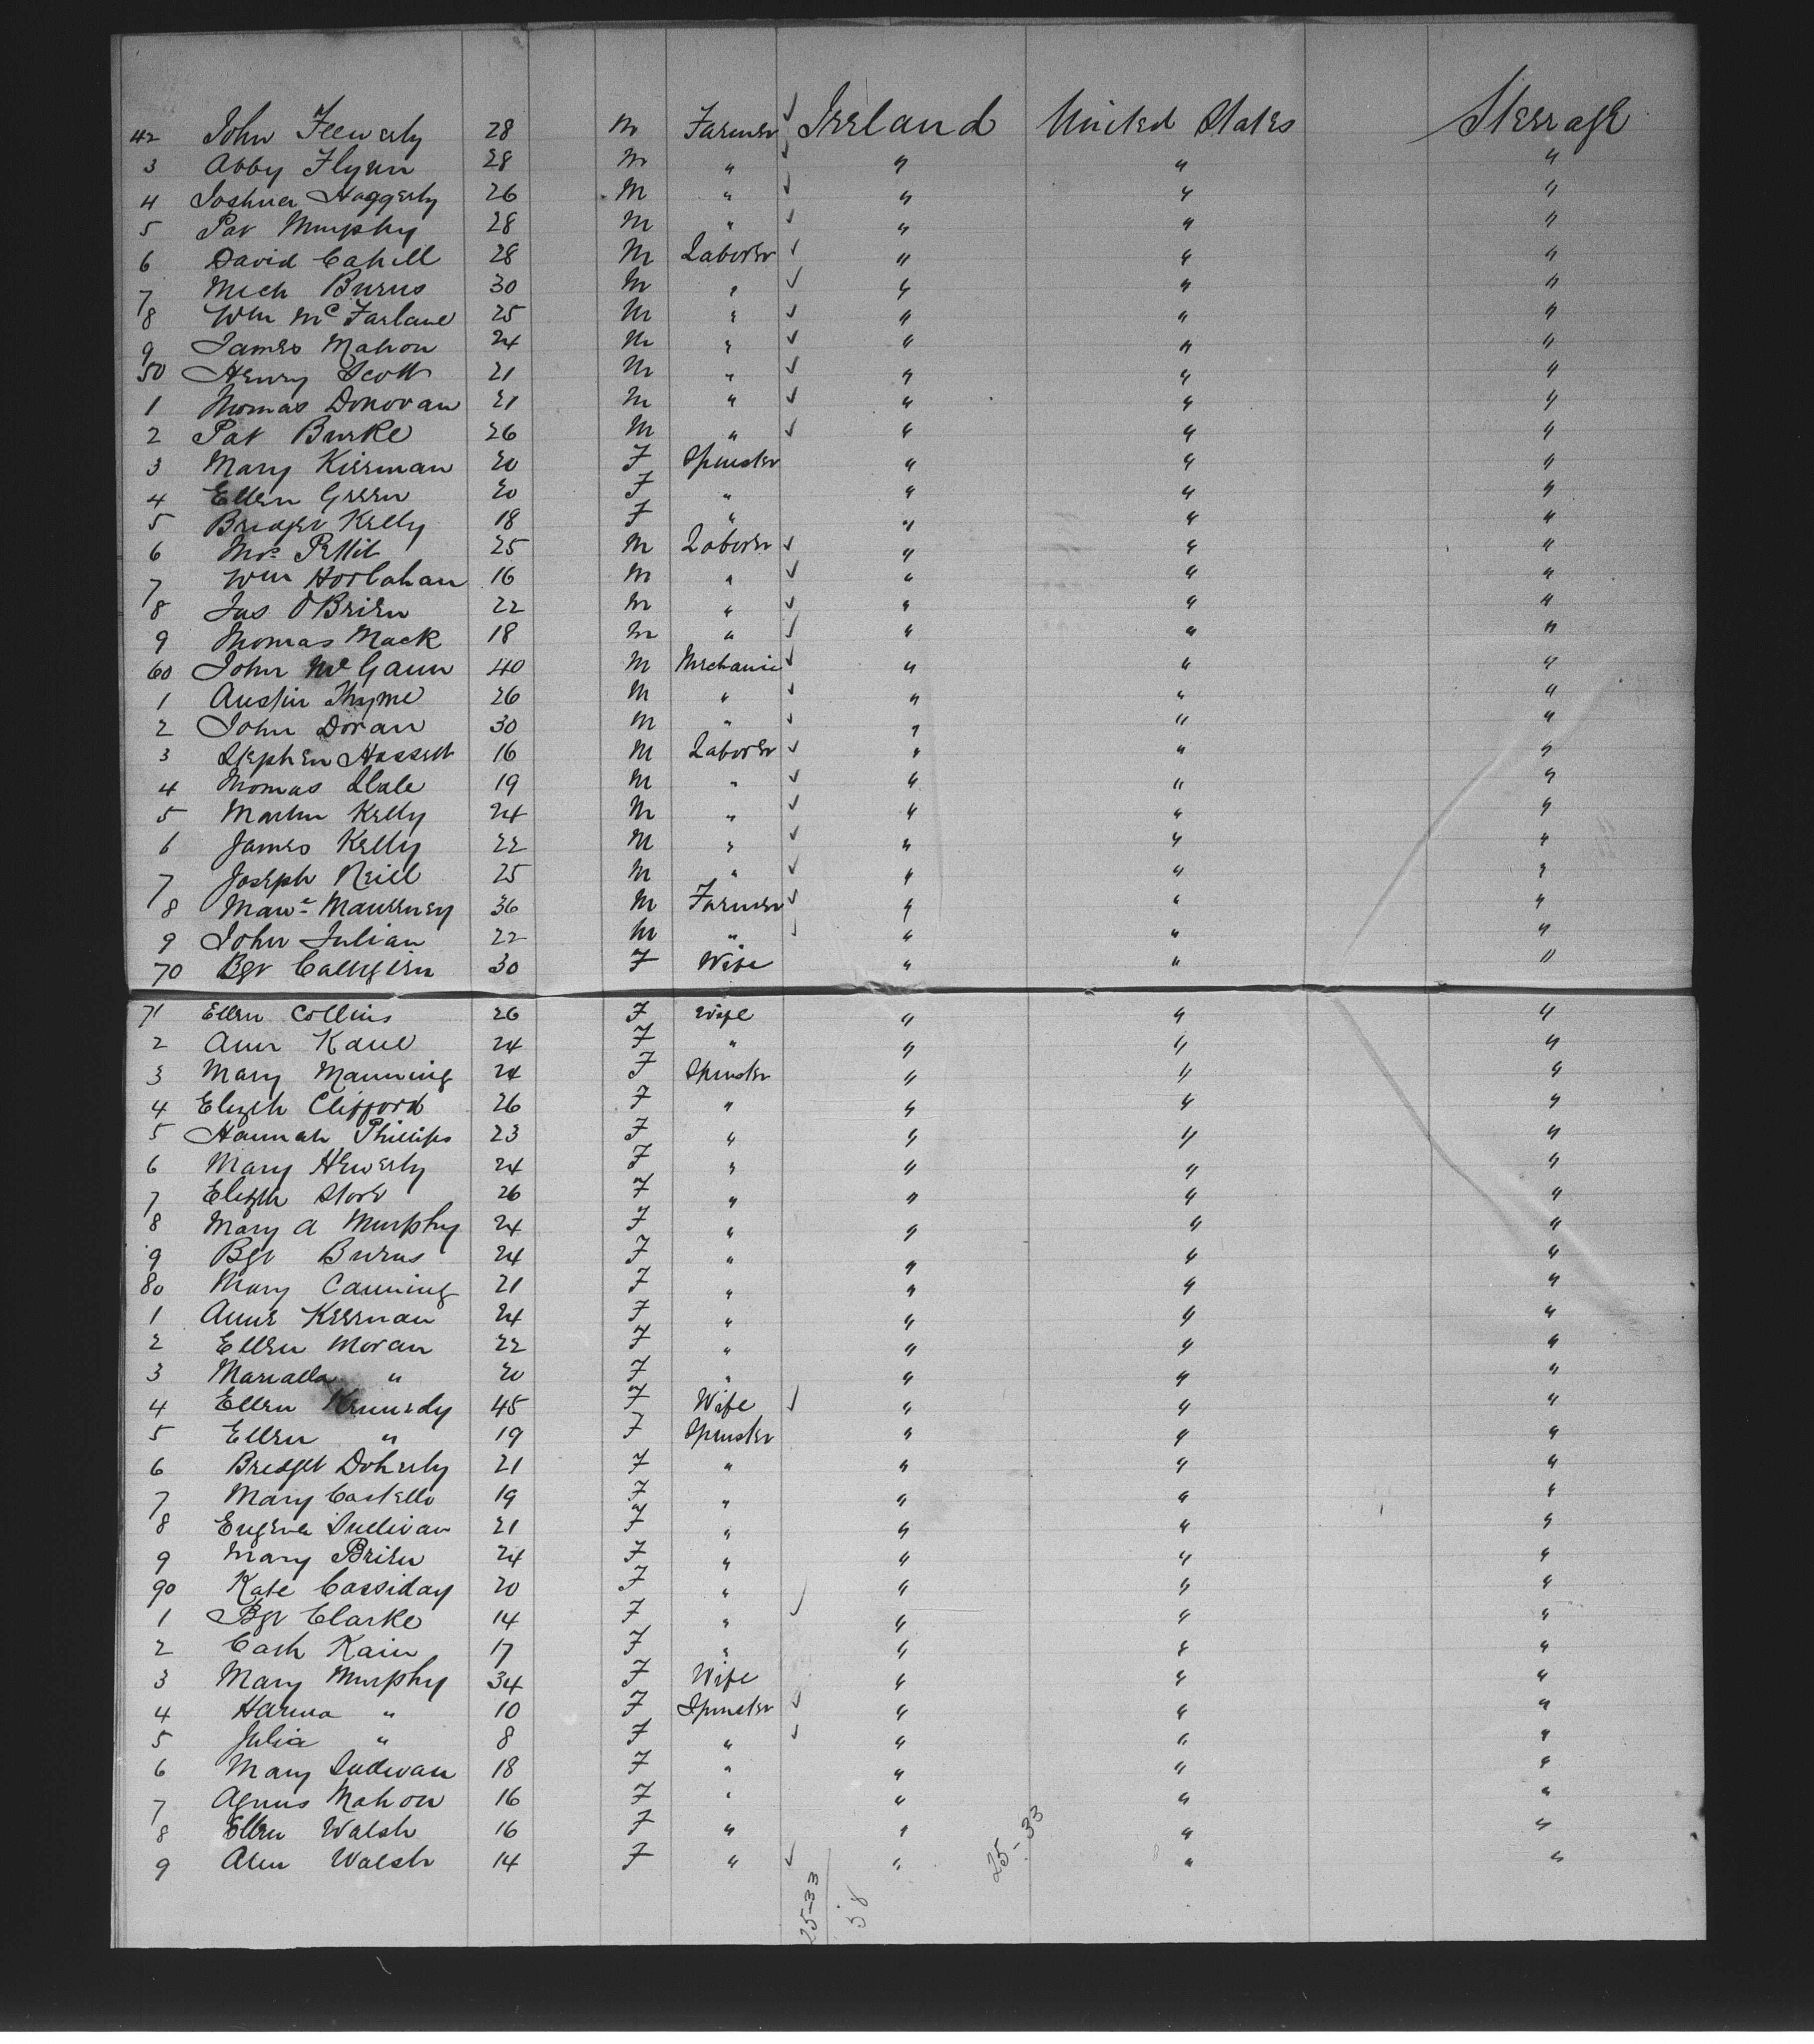 42 John Flewerly 28 M Farmer ✓ Ireland United States Steerage
3 Abby Flynn 28 M " ✓ " " "
4 Joshua Haggerty 26 M " ✓ " " "
5 Pat Murphy 28 M " ✓ " " "
6 David Cahill 28 M Laborer ✓ " " "
7 Mich Burns 30 M " ✓ " " "
8 Wm McFarlane 25 M " ✓ " " "
9 James Mahon 24 M " ✓ " " "
50 Henry Scott 21 M " ✓ " " "
1 Thomas Donovan 21 M " ✓ " " "
2 Pat Burke 26 M " ✓ " " "
3 Mary Kierman 20 F Spinster " " "
4 Ellen Green 20 F " " " "
5 Bridget Kelly 18 F " " " "
6 Pettit 25 M Laborer ✓ " " "
7 Wm Horlahan 16 M " ✓ " " "
8 Jas O'Brien 22 M " ✓ " " "
9 Thomas Mack 18 M " ✓ " " "
60 John McGann 40 M Mechanic ✓ " " "
1 Austin Thyme 26 M " ✓ " " "
2 John Doran 30 M " ✓ " " "
3 Stephen Hassett 16 M Laborer ✓ " " "
4 Thomas 19 M " ✓ " " "
5 Martin Kelly 24 M " ✓ " " "
6 James Kelly 22 M " ✓ " " "
7 Joseph Neill 25 M " ✓ " " "
8 36 M Farmer ✓ " " "
9 John Julian 22 M " ✓ " " "
70 Bgt 30 F Wife " " "
71 Ellen Collins 26 F Wife " " "
2 Ann Kane 24 F " " " "
3 Mary Manning 24 F Spinster " " "
4 Elizth Clifford 26 F " " " "
5 Hannah Phillips 23 F " " " "
6 Mary Hewerly 24 F " " " "
7 Elizth 26 F " " " "
8 Mary A Murphy 24 F " " " "
9 Bgt Burns 24 F " " " "
80 Mary Canning 21 F " " " "
1 Anne Keernan 24 F " " " "
2 Ellen Moran 22 F " " " "
3 Marialla " 20 F " " " "
4 Ellen Kennedy 45 F Wife ✓ " " "
5 Ellen " 19 F Spinster " " "
6 Bridget Doherty 21 F " " " "
7 Mary Costello 19 F " " " "
8 Eugena Sullivan 21 F " " " "
9 Mary Brien 24 F " " " "
90 Kate Cassiday 20 F " " " "
1 Bgt Clarke 14 F " ✓ " " "
2 Cath Kain 17 F " " " "
3 Mary Murphy 34 F Wife " " "
4 Hanna " 10 F Spinster ✓ " " "
5 Julia " 8 F " ✓ " " "
6 Mary 18 F " " " "
7 Agnus Mahon 16 F " " " "
8 Ellen Walsh 16 F " " " "
9 Alen Walsh 14 F " ✓ " " "
25-33
25-33
58